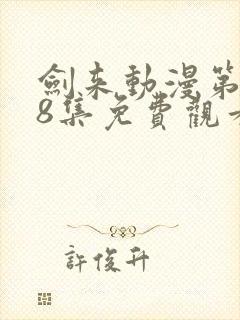 劍来動漫第
8集免費觀看
許俊升